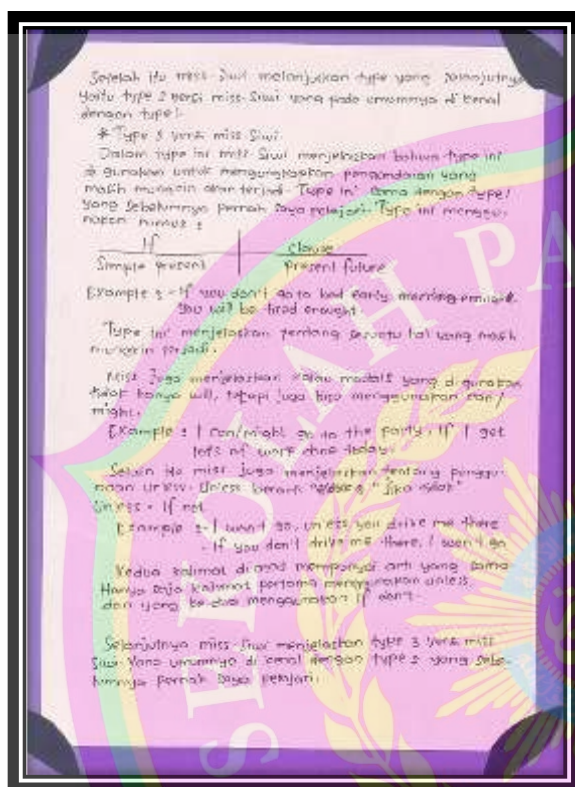 Setelah itu miss Siwi melanjutkan type yang selanjutnya
yaitu type 2 versi miss Siwi yang pada umumnya di kenal
dengan type 1.
* Type versi miss Siwi
Dalam type ini miss Siwi menjelaskan bahwa type ini
di gunakan untuk mengungkapkan pengandaian yang
masih mungkin akan terjadi. Type ini sama dengan type 1
yang sebelumnya pernah saya pelajari. Type ini menggu-
nakan rumus :
If clause
Simple present Present future
Example : - If you don't go to bed early
You will be tired
Type ini menjelaskan tentang sesuatu hal yang masih
mungkin terjadi.
Miss juga menjelaskan kalau modals yang digunakan
tidak hanya will, tetapi juga bisa menggunakan can/
might.
Example : I can/might go to the party, If I get
lots of work done today.
Selain itu miss juga menjelaskan tentang penggu-
naan unless. Unless berarti "Jika tidak"
Unless = If not
Example : - I won't go, unless you drive me there
- If you don't drive me there, I won't go
Kedua kalimat di atas mempunyai arti yang sama
Hanya saja kalimat pertama menggunakan unless
dan yang ke dua menggunakan If don't.
Selanjutnya miss Siwi menjelaskan type 3 versi miss
Siwi yang umumnya di kenal dengan type 2 yang sebe-
lumnya pernah saya pelajari.
SEKOLAH PA